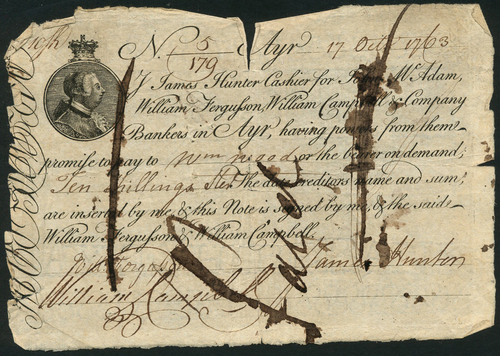 No 5/179 Ayr 17 Octr 1763
I James Hunter Cashier for McAdam,
William Fergusson, William Campbell & Company
Bankers in Ayr, having powers from them
promise to pay to Wm or the bearer on demand,
Ten Shillings Ster. The date creditors name and sum
are inserted by me, & this Note is signed by me, & the said
William Fergusson & William Campbell.
Will Fergusson James Hunter
William Campbell